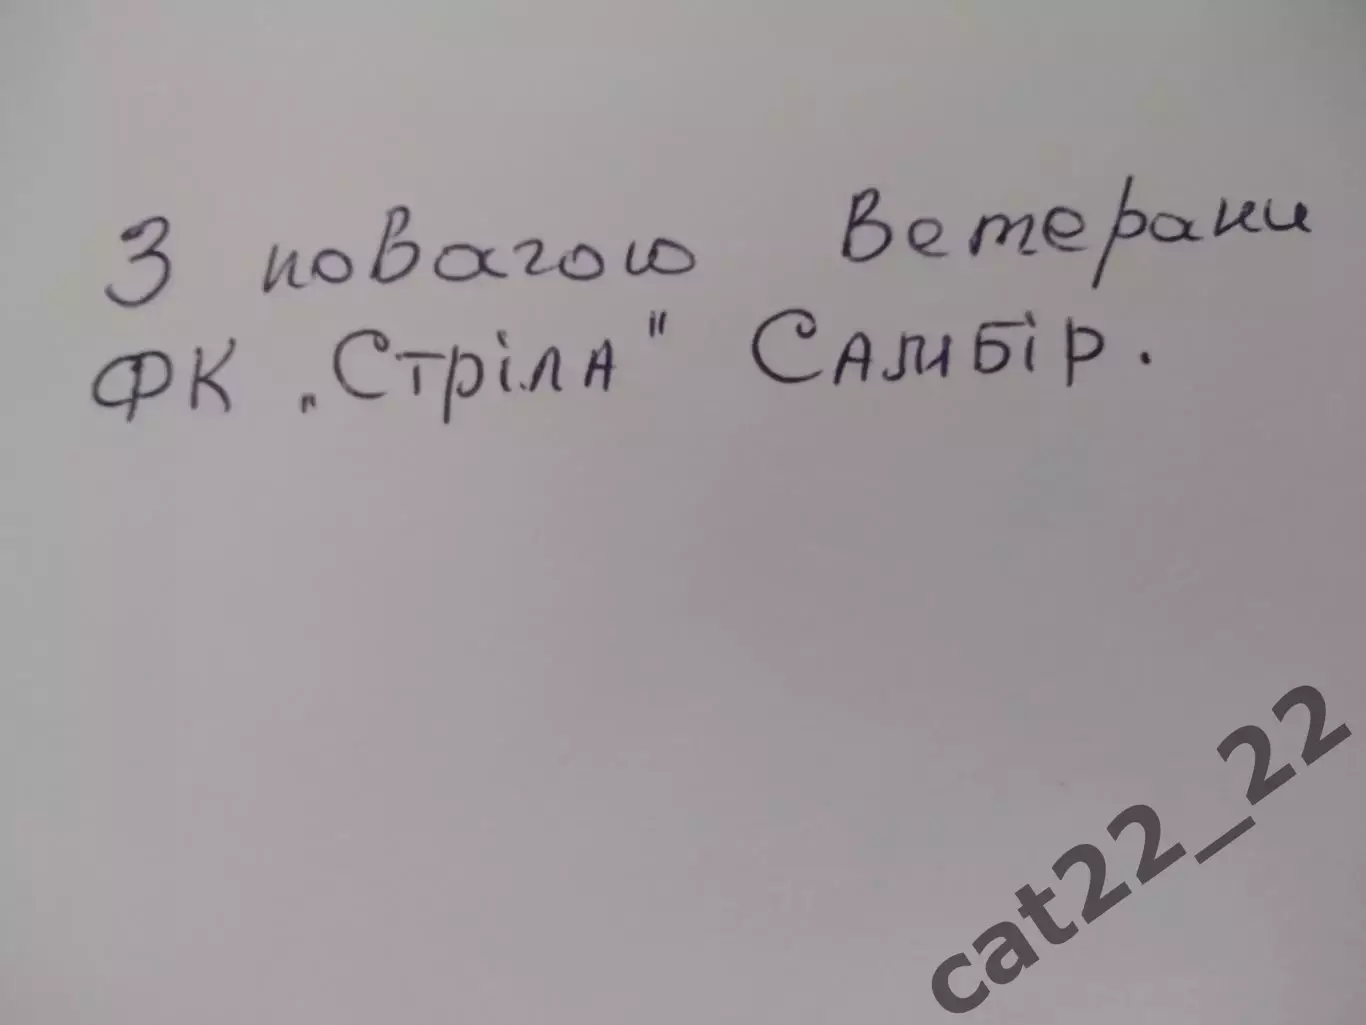 З повагою Ветерани
ФК „Стріла" Самбір.
cat22_22